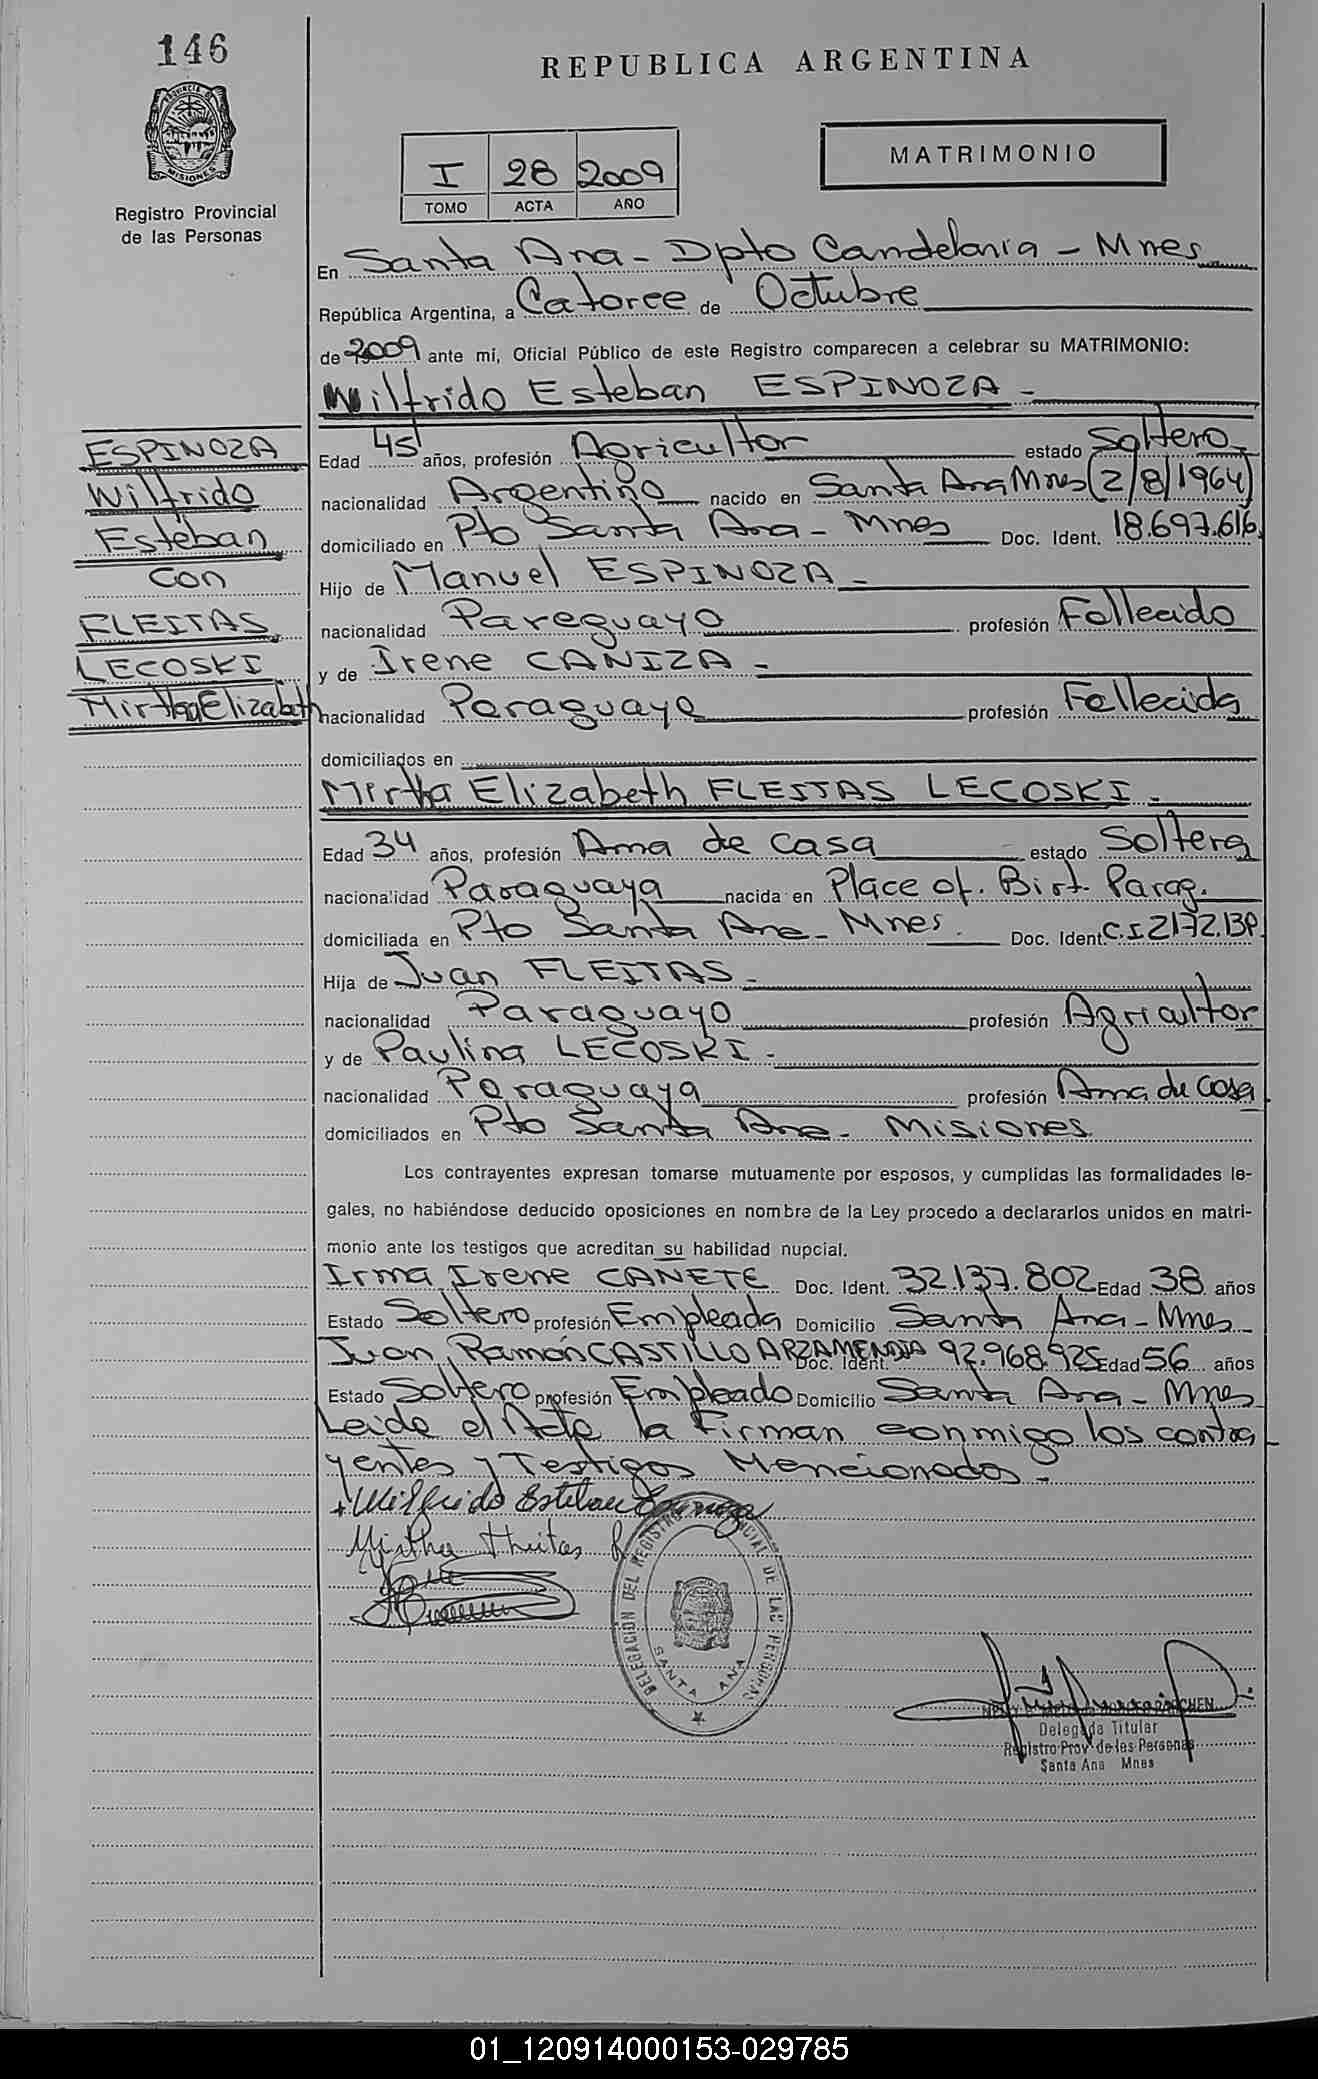 146
REPUBLICA ARGENTINA
PROVINCIA DE
MISIONES
Registro Provincial
de las Personas
I 28 2009
TOMO ACTA AÑO
MATRIMONIO
En Santa Ana - Dpto Candelaria - Mnes
República Argentina, a Catorce de Octubre
de 2009 ante mi, Oficial Público de este Registro comparecen a celebrar su MATRIMONIO:
Wilfrido Esteban ESPINOZA -
ESPINOZA
Wilfrido
Esteban
Con
FLEITAS
LECOSKI
Mirtha Elizabeth
Edad 45 años, profesión Agricultor estado Soltero
nacionalidad Argentino nacido en Santa Ana Mnes (2/8/1964)
domiciliado en Pto Santa Ana - Mnes Doc. Ident. 18.697.616
Hijo de Manuel ESPINOZA -
nacionalidad Pareguayo profesión Fallecido
y de Irene CANIZA -
nacionalidad Paraguaya profesión Fallecida
domiciliados en
Mirtha Elizabeth FLEITAS LECOSKI -
Edad 34 años, profesión Ama de casa estado Soltera
nacionalidad Paraguaya nacida en Place of. Birt. Parag.
domiciliada en Pto Santa Ana - Mnes. Doc. Ident. C.I 2172.
Hija de Juan FLEITAS -
nacionalidad Paraguayo profesión Agricultor
y de Paulina LECOSKI -
nacionalidad Paraguaya profesión Ama de casa
domiciliados en Pto Santa Ana - Misiones
Los contrayentes expresan tomarse mutuamente por esposos, y cumplidas las formalidades le-
gales, no habiéndose deducido oposiciones en nombre de la Ley procedo a declararlos unidos en matri-
monio ante los testigos que acreditan su habilidad nupcial.
Irma Irene CAÑETE Doc. Ident. 32.137.802 Edad 38 años
Estado Soltero profesión Empleada Domicilio Santa Ana - Mnes
Juan Ramón CASTILLO ARZAMENDIA Doc. Ident. 92.968.925 Edad 56 años
Estado Soltero profesión Empleado Domicilio Santa Ana - Mnes
Leida el Acta la Firman conmigo los contra
yentes y Testigos Mencionados -
Wilfrido Esteban Espinoza
Mirtha Fleitas L
DELEGACION DEL REGISTRO PROVINCIAL DE LAS PERSONAS
SANTA ANA
Delegada Titular
Registro Prov de las Personas
Santa Ana Mnes
01_120914000153-029785